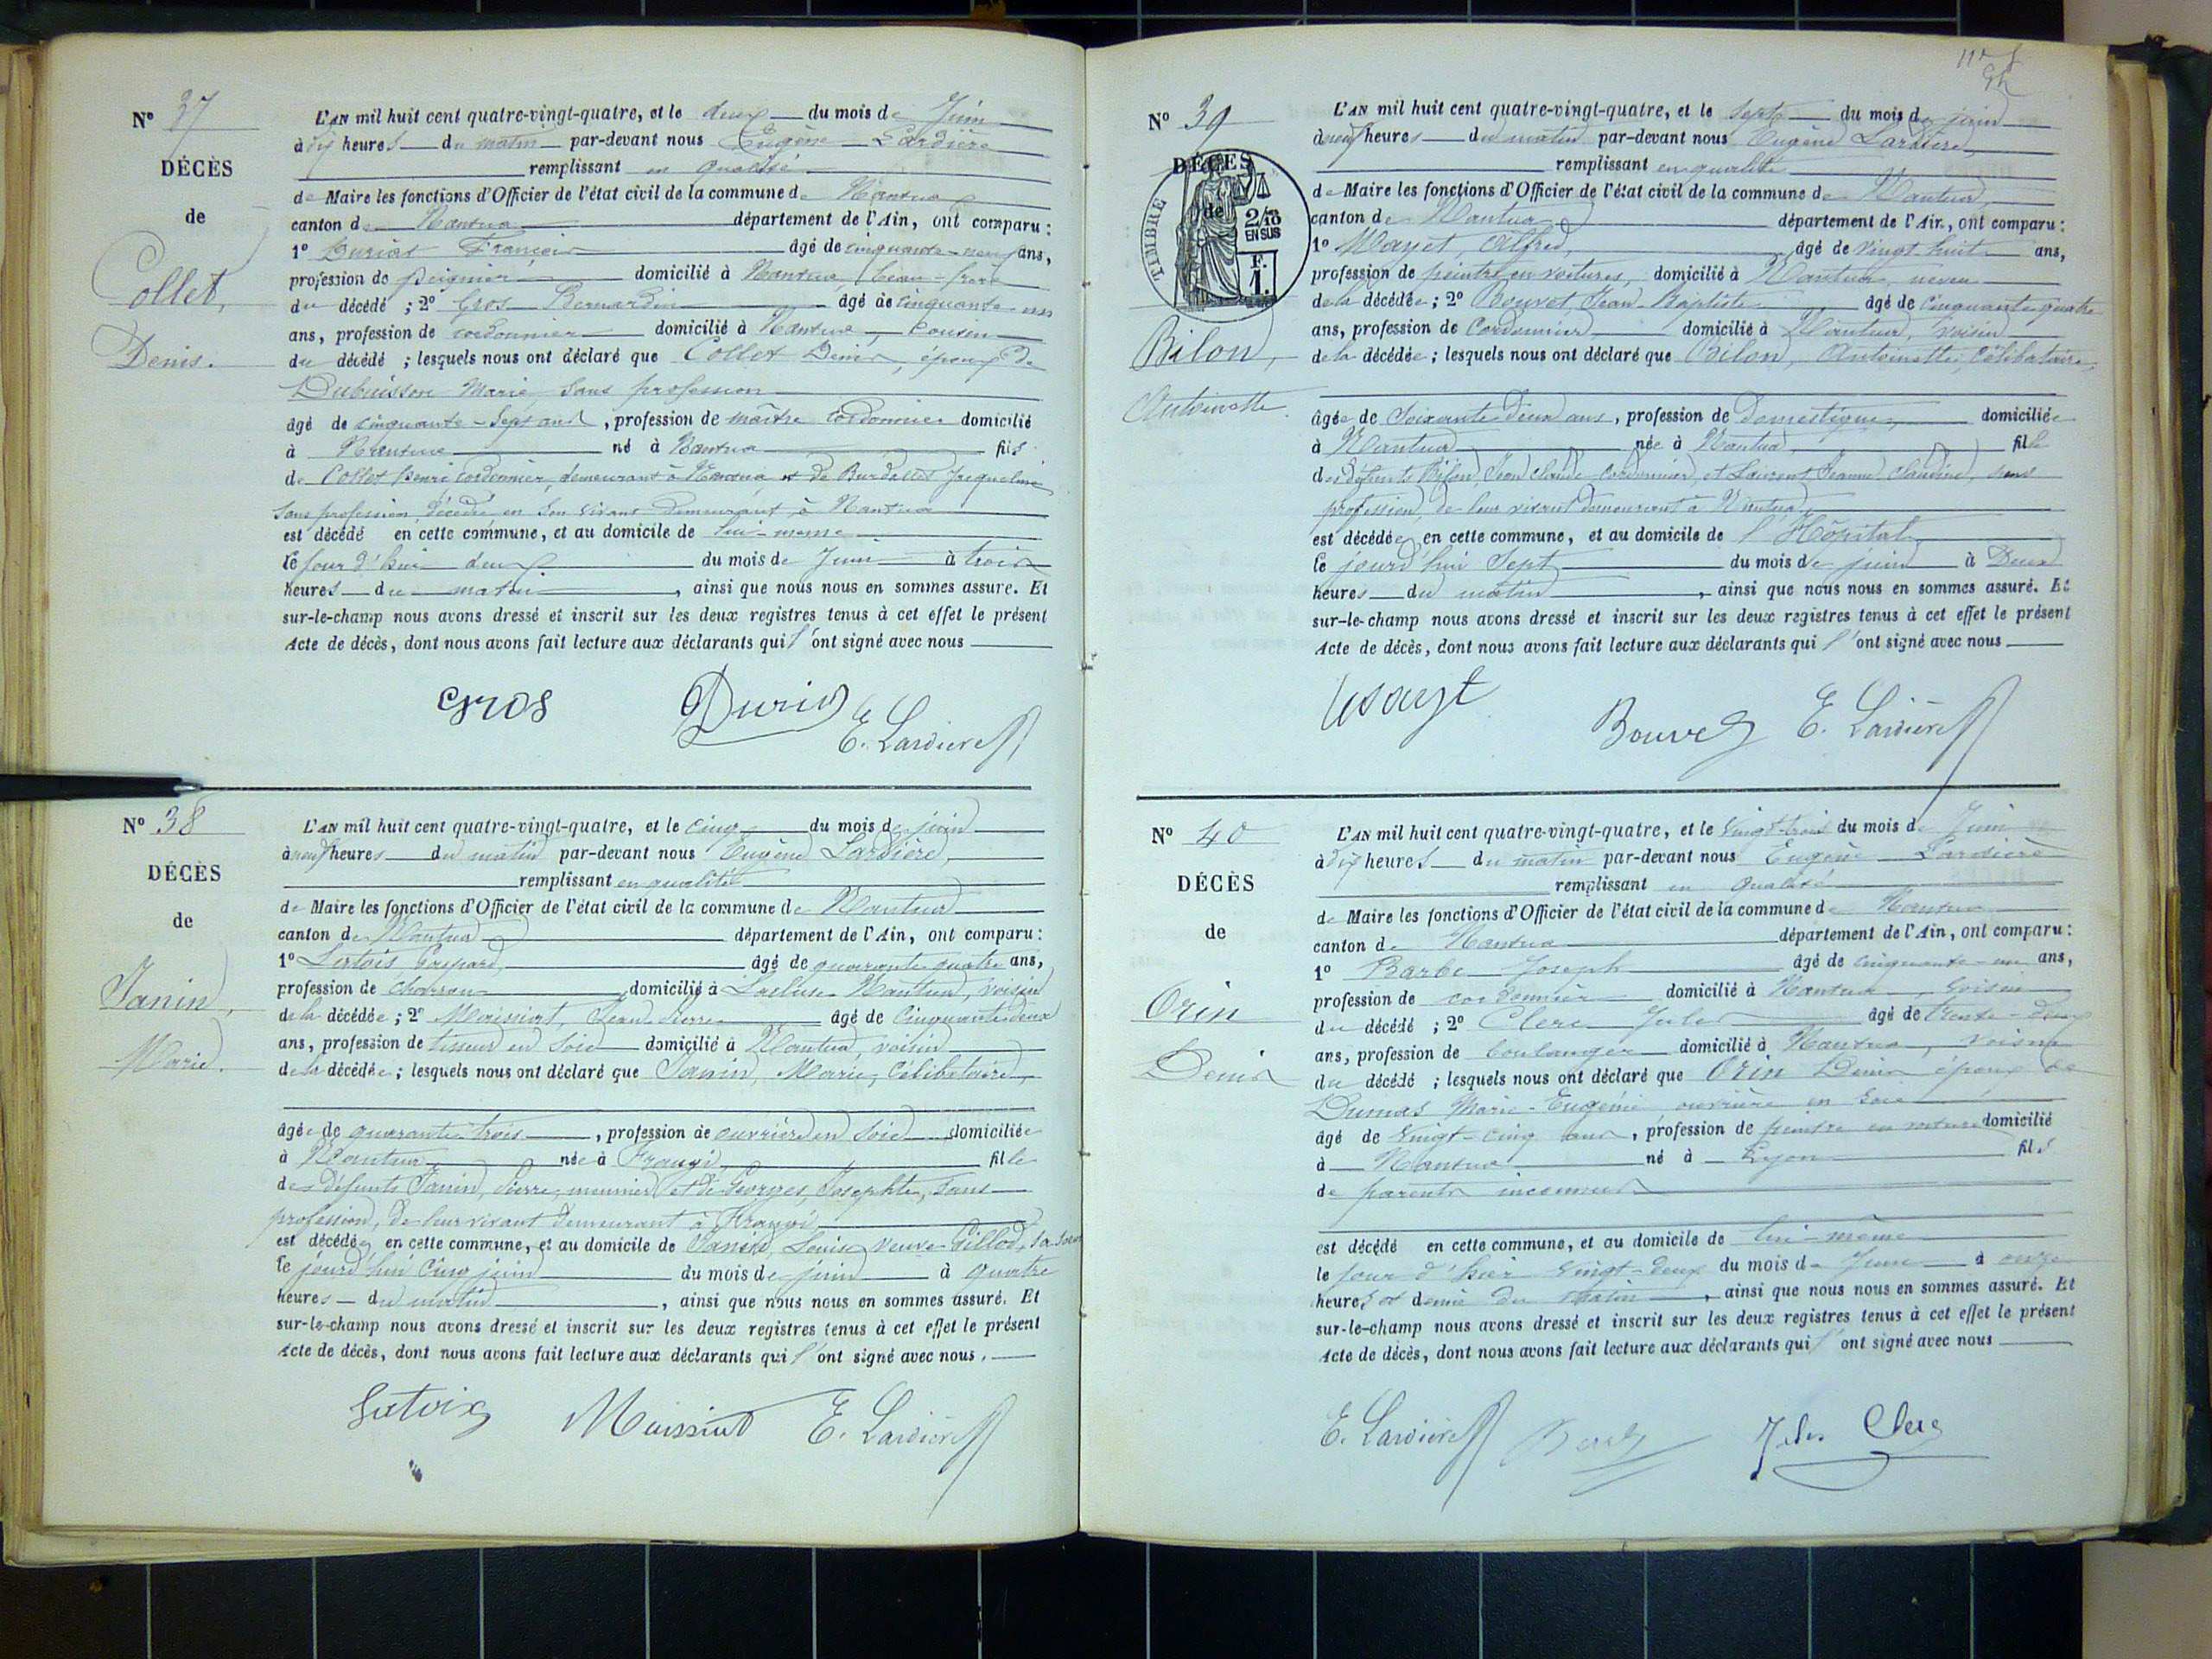 Nº 37
DÉCÈS
de
Collet,
Denis.
L'AN mil huit cent quatre-vingt-quatre, et le deux du mois de Juin
à dix heures du matin par-devant nous Eugène Lardière
remplissant en qualité
de Maire les fonctions d'Officier de l'état civil de la commune de Nantua
canton de Nantua département de l'Ain, ont comparu :
1º François âgé de cinquante-neuf ans,
profession de peignier domicilié à Nantua, beau-frère
du décédé ; 2º Gros Bernardin âgé de cinquante un
ans, profession de cordonnier domicilié à Nantua, cousin
du décédé ; lesquels nous ont déclaré que Collet Denis, époux de
Dubuisson Marie, sans profession
âgé de cinquante-sept ans, profession de maître cordonnier domicilié
à Nantua né à Nantua fils
de Collet Henri cordonnier, demeurant à Nantua et de Burdallet Jacqueline
sans profession décédée en son vivant demeurant à Nantua
est décédé en cette commune, et au domicile de lui-même
le jour d'hui deux du mois de Juin à trois
heures du matin, ainsi que nous nous en sommes assuré. Et
sur-le-champ nous avons dressé et inscrit sur les deux registres tenus à cet effet le présent
Acte de décès, dont nous avons fait lecture aux déclarants qui l'ont signé avec nous
Gros E. Lardière
Nº 38
DÉCÈS
de
Janin,
Marie.
L'AN mil huit cent quatre-vingt-quatre, et le cinq du mois de juin
à neuf heures du matin par-devant nous Eugène Lardière,
remplissant en qualité
de Maire les fonctions d'Officier de l'état civil de la commune de Nantua
canton de Nantua département de l'Ain, ont comparu :
1º Gaspard, âgé de quarante quatre ans,
profession de charron domicilié à Lacluse Nantua, voisin
de la décédée ; 2º Maissiat, Jean Pierre âgé de Cinquante deux
ans, profession de tisseur en soie domicilié à Nantua, voisin
de la décédée ; lesquels nous ont déclaré que Janin, Marie, Célibataire,
âgée de quarante trois, profession de ouvrière en soie domiciliée
à Nantua née à Frangi fille
des défunts Janin, Pierre, meunier et de Georges, Josephte, sans
profession, de leur vivant demeurant à Frangi,
est décédée en cette commune, et au domicile de Janin, Louise veuve Gillod, sa soeur
le jourd'hui cinq juin du mois de juin à quatre
heures du matin, ainsi que nous nous en sommes assuré. Et
sur-le-champ nous avons dressé et inscrit sur les deux registres tenus à cet effet le présent
Acte de décès, dont nous avons fait lecture aux déclarants qui l'ont signé avec nous.
Maissiat E. Lardière
Nº 39
DÉCÈS
de
TIMBRE
2/10
EN SUS
F.
1.
Bilon,
Antoinette.
L'AN mil huit cent quatre-vingt-quatre, et le sept du mois de juin
à neuf heures du matin par-devant nous Eugène Lardière,
remplissant en qualité
de Maire les fonctions d'Officier de l'état civil de la commune de Nantua,
canton de Nantua département de l'Ain, ont comparu :
1º Mayet, Alfred, âgé de vingt huit ans,
profession de peintre en voitures, domicilié à Nantua, neveu
de la décédée ; 2º Bouvet, Jean-Baptiste âgé de cinquante quatre
ans, profession de Cordonnier domicilié à Nantua, voisin
de la décédée ; lesquels nous ont déclaré que Bilon, Antoinette, Célibataire,
âgée de soixante deux ans, profession de domestique, domiciliée
à Nantua née à Nantua, fille
des défunts Bilon, Jean Claude cordonnier, et Laurent, Jeanne Claudine, sans
profession, de leur vivant demeurant à Nantua,
est décédée en cette commune, et au domicile de l'Hôpital
le jourd'hui sept du mois de juin à Deux
heures du matin, ainsi que nous nous en sommes assuré. Et
sur-le-champ nous avons dressé et inscrit sur les deux registres tenus à cet effet le présent
Acte de décès, dont nous avons fait lecture aux déclarants qui l'ont signé avec nous
Bouvet E. Lardière
Nº 40
DÉCÈS
de
Orin
Denis
L'AN mil huit cent quatre-vingt-quatre, et le vingt-trois du mois de Juin
à dix heures du matin par-devant nous Eugène Lardière
remplissant en qualité
de Maire les fonctions d'Officier de l'état civil de la commune de Nantua
canton de Nantua département de l'Ain, ont comparu :
1º Barbe Joseph âgé de cinquante-un ans,
profession de cordonnier domicilié à Nantua voisin
du décédé ; 2º Clerc Jules âgé de trente-deux
ans, profession de boulanger domicilié à Nantua, voisin
du décédé ; lesquels nous ont déclaré que Orin Denis époux de
Dumas Marie-Eugénie ouvrière en soie
âgé de vingt-cinq ans, profession de peintre en voiture domicilié
à Nantua né à Lyon fils
de parents inconnus
est décédé en cette commune, et au domicile de lui-même
le jour d'hier vingt-deux du mois de Juin à onze
heures et demie du matin, ainsi que nous nous en sommes assuré. Et
sur-le-champ nous avons dressé et inscrit sur les deux registres tenus à cet effet le présent
Acte de décès, dont nous avons fait lecture aux déclarants qui l'ont signé avec nous
E. Lardière Jules Clerc